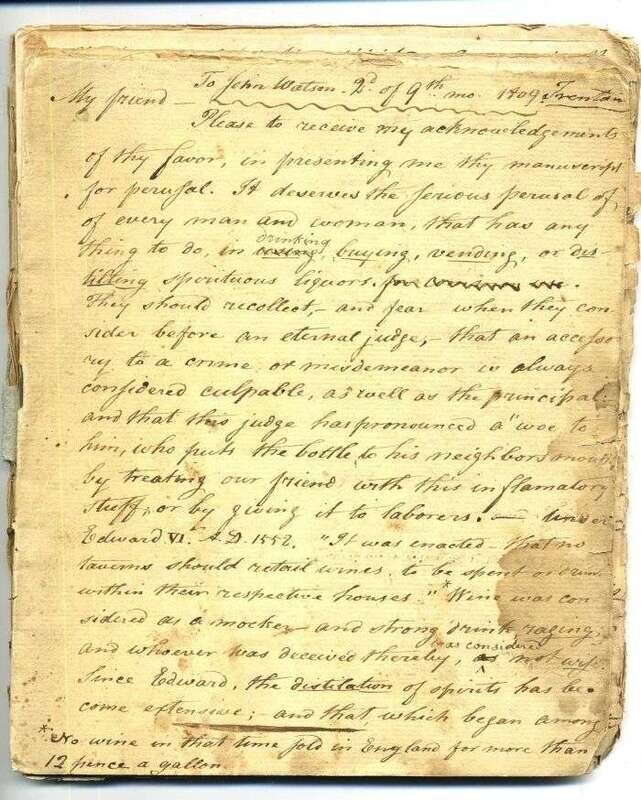 To John Watson. 2d of 9th mo. 1809 Trenton
My friend —
Please to receive my acknowledgements
of thy favor, in presenting me thy manuscript
for perusal. It deserves the serious perusal of,
of every man and woman, that has any
thing to do, in drinking, buying, vending, or dis-
tilling spirituous liquors.
They should recollect, – and fear when they con
sider before an eternal judge, – that an accesso
ry to a crime or misdemeanor is always
considered culpable, as well as the principal:
and that this judge has pronounced a "woe to
him, who puts the bottle to his neighbors mouth
by treating our friend with this inflamatory
stuff, or by giving it to laborers. — Under
Edward VI. A.D. 1552. "It was enacted – that no
taverns should retail wines, to be spent or drun
within their respective houses."* Wine was con
sidered as a mocker – and strong drink, raging,
and whoever was deceived thereby, was considered not wise.
Since Edward, the distilation of spirits has be-
come extensive; and that, which began among
* No wine in that time sold in England for more than
12 pence a gallon.